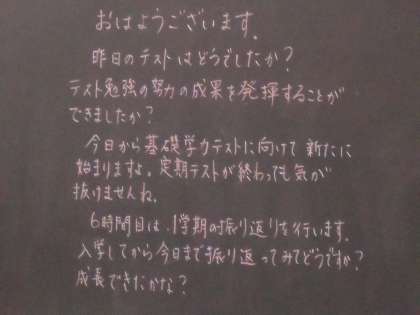 おはようございます。
昨日のテストはどうでしたか?
テスト勉強の努力の成果を発揮することが
できましたか?
今日から基礎学力テストに向けて新たに
始まりますよ。定期テストが終わっても気が
抜けませんね。
6時間目は、1学期の振り返りを行います。
入学してから今日まで振り返ってみてどうですか?
成長できたかな?